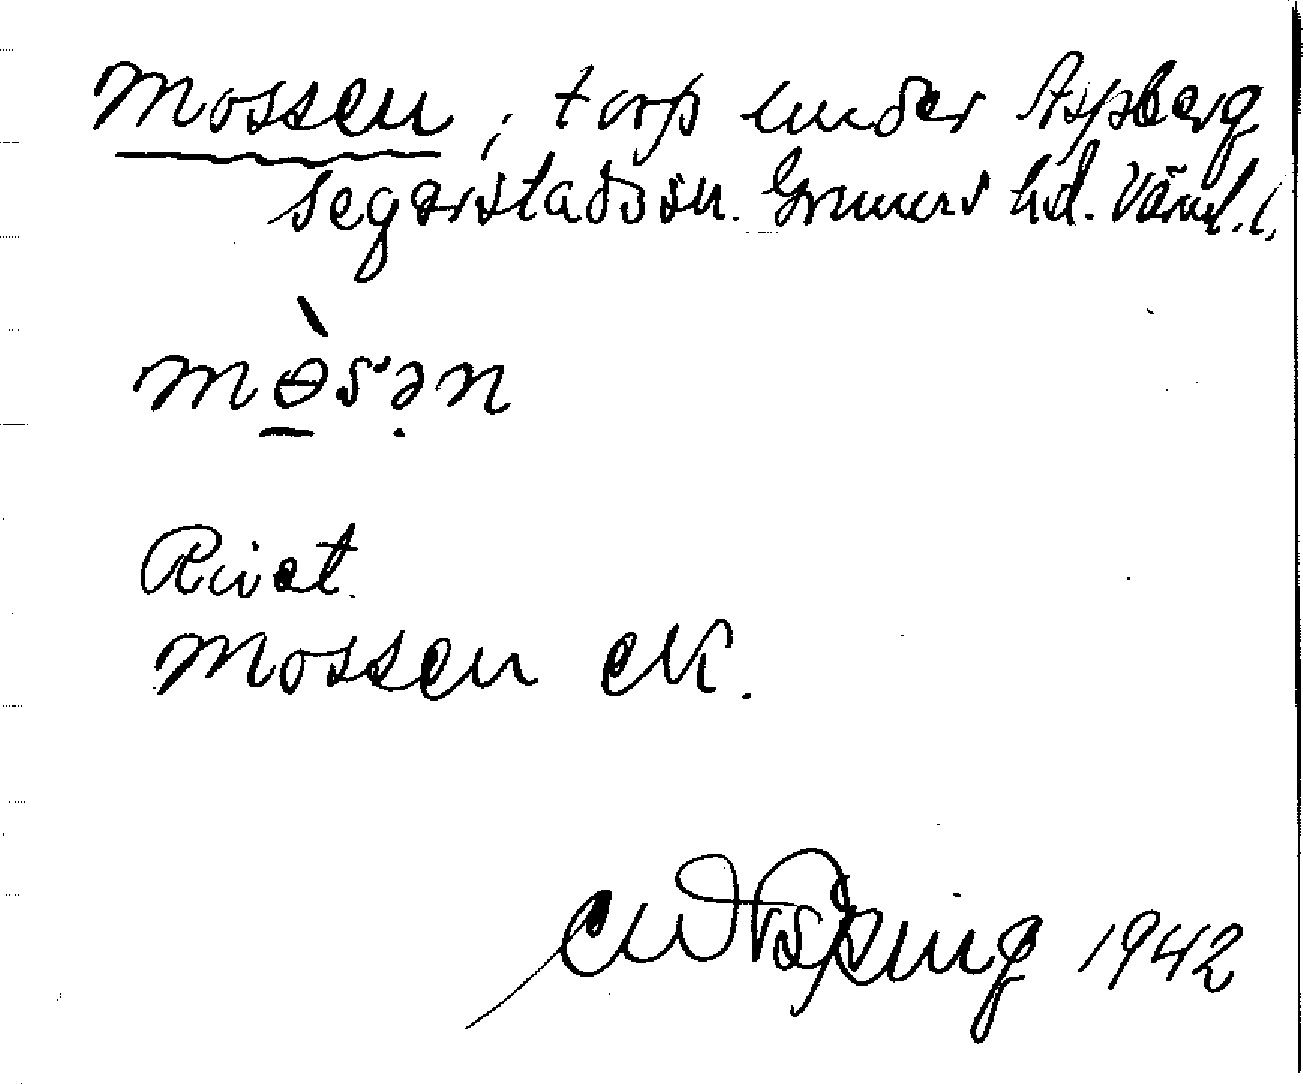 Mossen, torp under Aspberg
Segerstads sn. Grums hd. Värml. l.
mɵ̀sən
Rivet.
Mossen EK.
1942